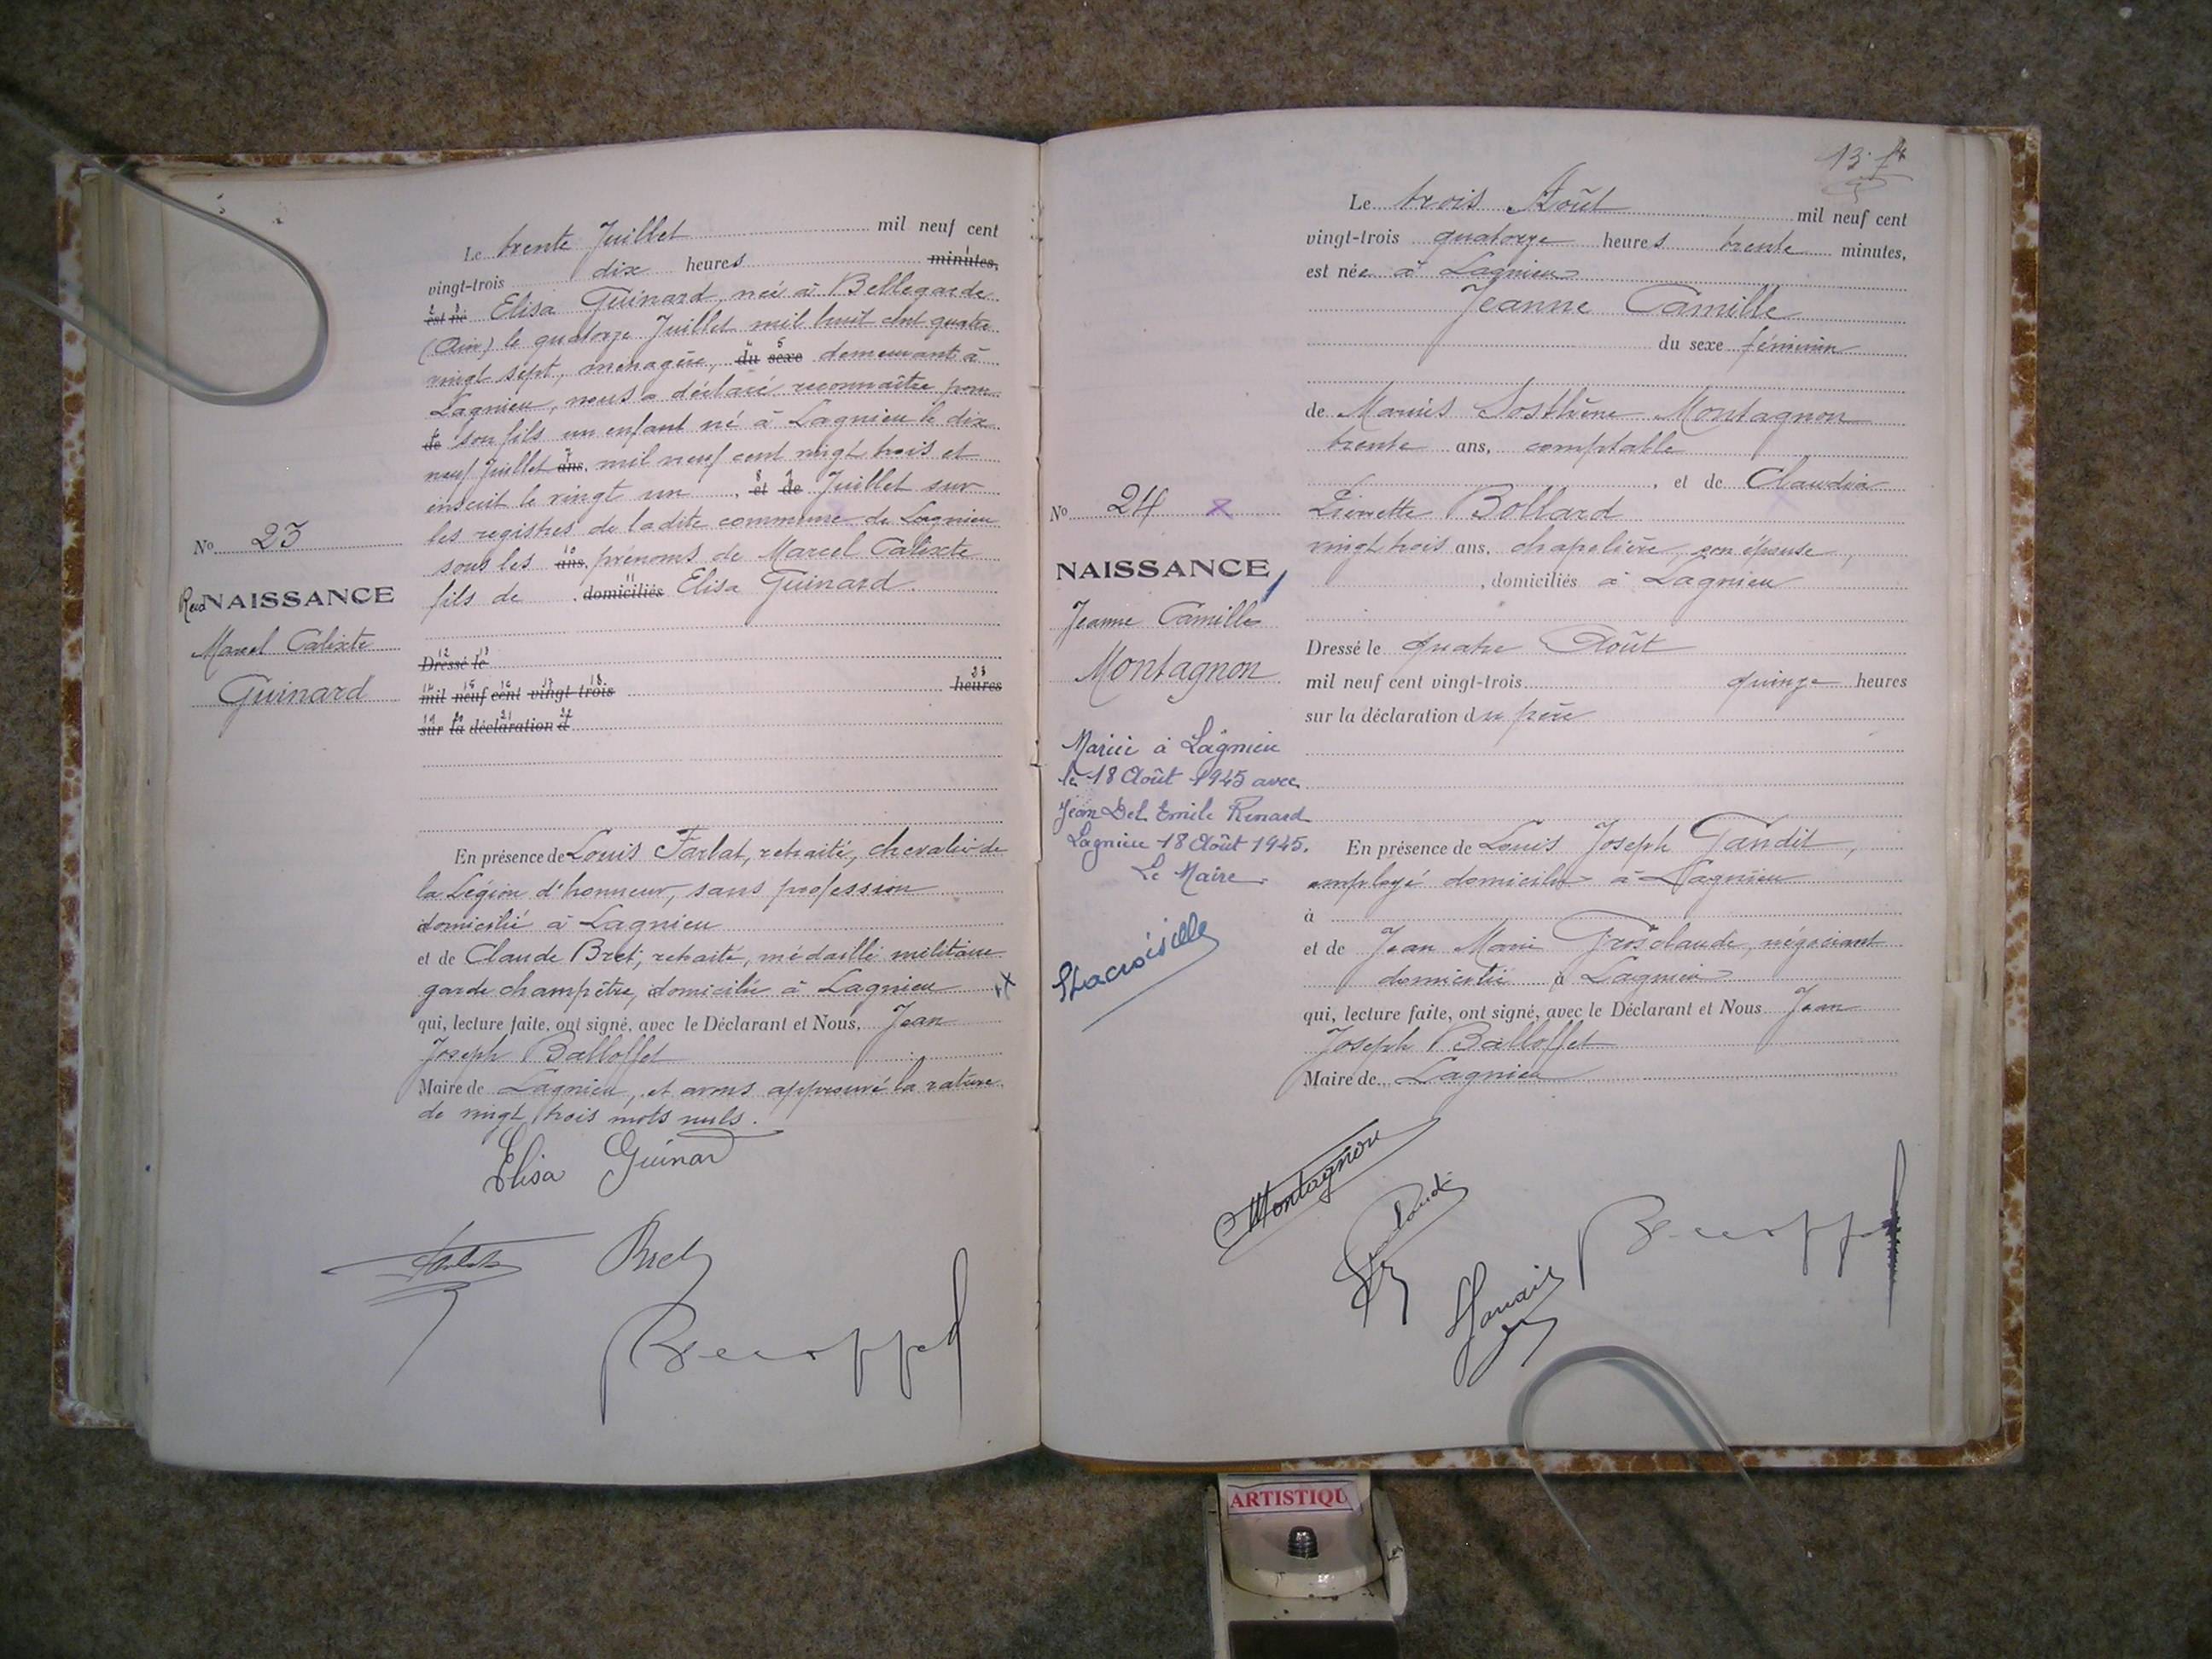 Le trente Juillet mil neuf cent
vingt-trois dix heures minutes,
est né Elisa Guinard, née à Bellegarde
(Ain) le quatorze Juillet mil huit cent quatre
vingt sept, ménagère, du sexe demeurant à
Lagnieu, nous a déclaré reconnaître pour
de son fils un enfant né à Lagnieu le dix
neuf Juillet ans, mil neuf cent vingt trois et
inscrit le vingt un , et de Juillet sur
les registres de ladite commune de Lagnieu
sous les ans, prénoms de Marcel Calixte
fils de , domiciliés Elisa Guinard.
Dressé le
mil neuf cent vingt trois heures
sur la déclaration d
En présence de Louis Farlat, retraité, chevalier de
la Légion d'honneur, sans profession
domicilié à Lagnieu
et de Claude Bret, retraité, médaillé militaire
garde champêtre, domicilié à Lagnieu
qui, lecture faite, ont signé, avec le Déclarant et Nous, Jean
Joseph Balloffet
Maire de Lagnieu, et avons approuvé la rature
de vingt trois mots nuls.
Elisa Guinard
Bret
No 23
NAISSANCE
Marcel Calixte
Guinard
13
Le trois Août mil neuf cent
vingt-trois quatorze heures trente minutes,
est née à Lagnieu
Jeanne Camille
du sexe féminin
de Marius Sosthène Montagnon
trente ans, comptable
, et de Claudia
Pierrette Bollard
vingt trois ans, chapelière, son épouse,
, domiciliés à Lagnieu
Dressé le quatre Août
mil neuf cent vingt-trois quinze heures
sur la déclaration du père
En présence de Louis Joseph Gandit,
employé domicilié à Lagnieu
à
et de Jean Marie Grosclaude, négociant
domicilié à Lagnieu
qui, lecture faite, ont signé, avec le Déclarant et Nous Jean
Joseph Balloffet
Maire de Lagnieu
Montagnon
No 24
NAISSANCE
Jeanne Camille
Montagnon
Mariée à Lagnieu
le 18 Août 1945 avec
Jean Emile Renard
Lagnieu 18 Août 1945.
Le Maire
ARTISTIQU